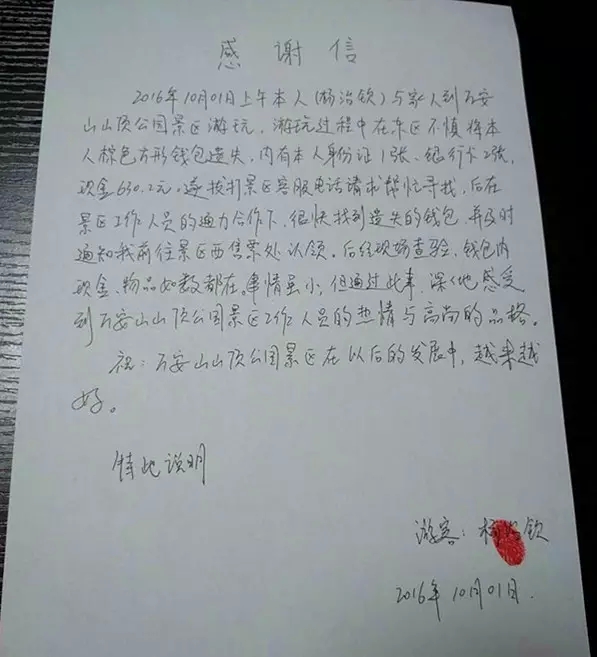 感谢信
2016年10月01日上午本人(杨治钦)与家人到万安
山山顶公园景区游玩,游玩过程中在东区不慎将本
人棕色方形钱包遗失,内有本人身份证1张、银行卡2张,
现金630.2元。遂拨打景区客服电话请求帮忙寻找,后在
景区工作人员的通力合作下,很快找到遗失的钱包,并及时
通知我前往景区西售票处认领。后经现场查验,钱包内
现金、物品如数都在。事情虽小,但通过此事,深深地感受
到万安山山顶公园景区工作人员的热情与高尚的品格。
祝:万安山山顶公园景区在以后的发展中,越来越
好。
特此说明
游客:杨治钦
2016年10月01日.